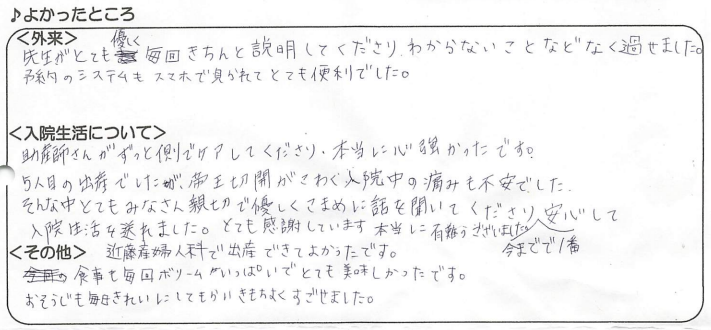 ♪よかったところ
<外来>
先生がとても優しく毎回きちんと説明してくださり、わからないことなどなく過せました。
予約のシステムもスマホで見られてとても便利でした。
<入院生活について>
助産師さんがずっと側でケアしてくださり、本当に心強かったです。
5人目の出産でしたが、帝王切開がこわく入院中の痛みも不安でした。
そんな中とてもみなさん親切で優しくこまめに話を聞いてくださり、安心して
入院生活を送れました。とても感謝しています 本当に有難うございました
<その他> 近藤産婦人科で出産できてよかったです。今までで1番
食事も毎回ボリュームがいっぱいでとても美味しかったです。
おそうじも毎日きれいにしてもらいきもちよくすごせました。